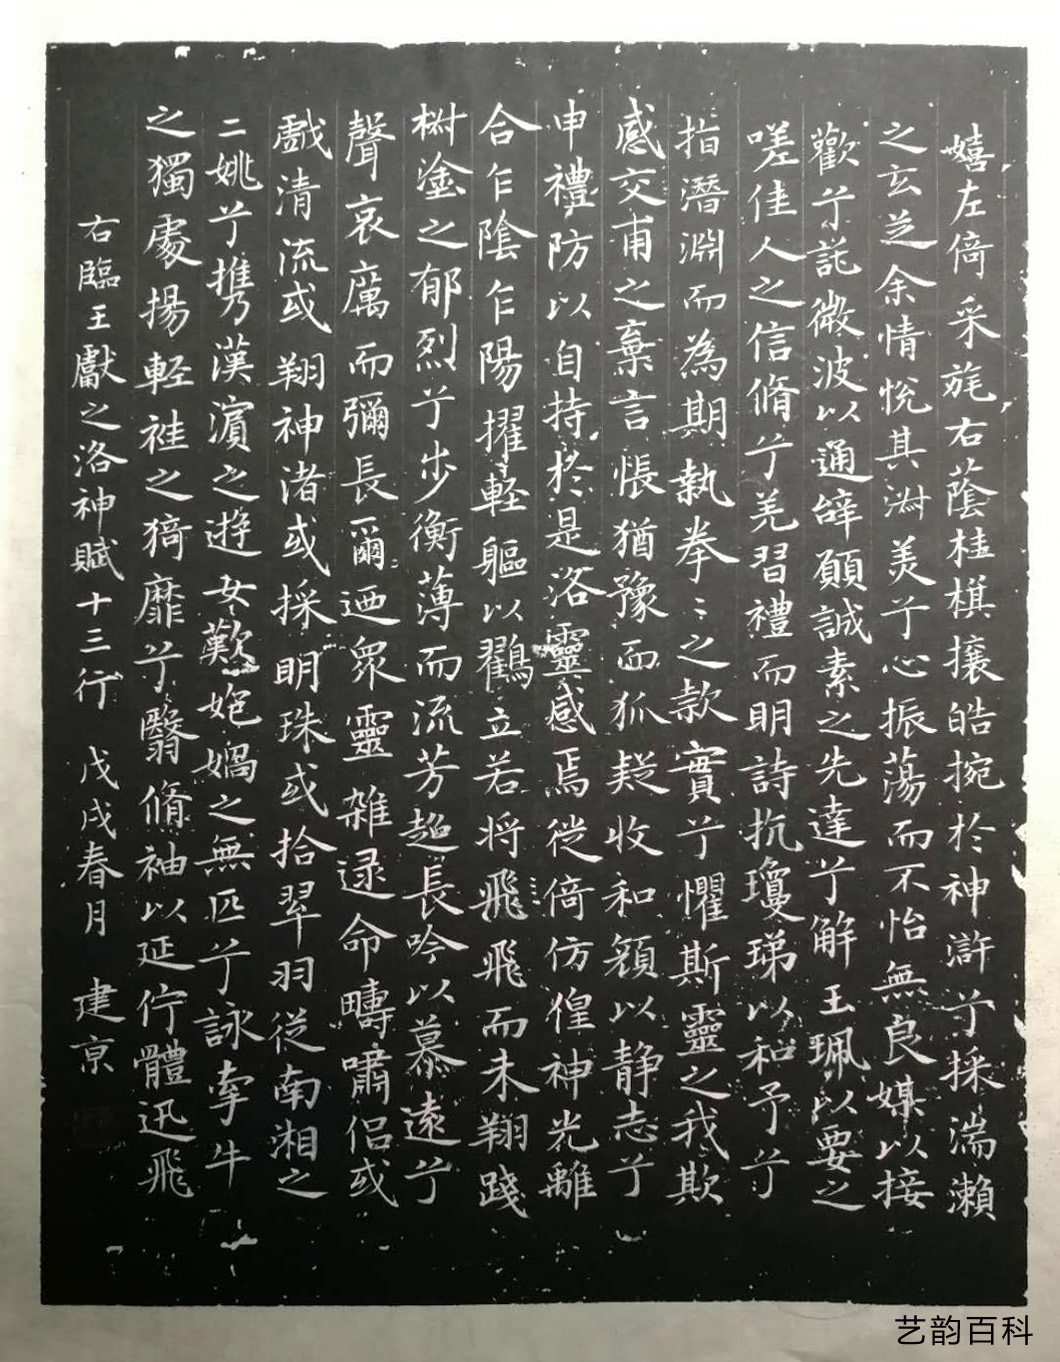 嬉左倚采旄右蔭桂棋攘皓捥於神滸兮採湍瀨
之玄芝余情悅其淑美兮心振蕩而不怡無良媒以接
歡兮託微波以通辝願誠素之先達兮解玉珮以要之
嗟佳人之信脩兮羌習禮而明詩抗瓊珶以和予兮
指潛淵而為期執拳〻之款實兮懼斯靈之我欺
感交甫之棄言悵猶豫而狐疑收和顏以静志兮
申禮防以自持於是洛靈感焉徙倚仿偟神光離
合乍陰乍陽擢軽軀以鸖立若将飛飛而未翔踐
椒塗之郁烈兮步衡薄而流芳超長吟以慕遠兮
聲哀厲而彌長爾迺眾靈雜遝命疇嘯侶或
戲清流或翔神渚或採明珠或拾翠羽従南湘之
二姚兮擕漢濵之遊女歎匏媧之無匹兮詠牽牛
之獨處揚軽袿之猗靡兮翳脩袖以延佇體迅飛
右臨王獻之洛神賦十三行 戊戌春月 建京
艺韵百科